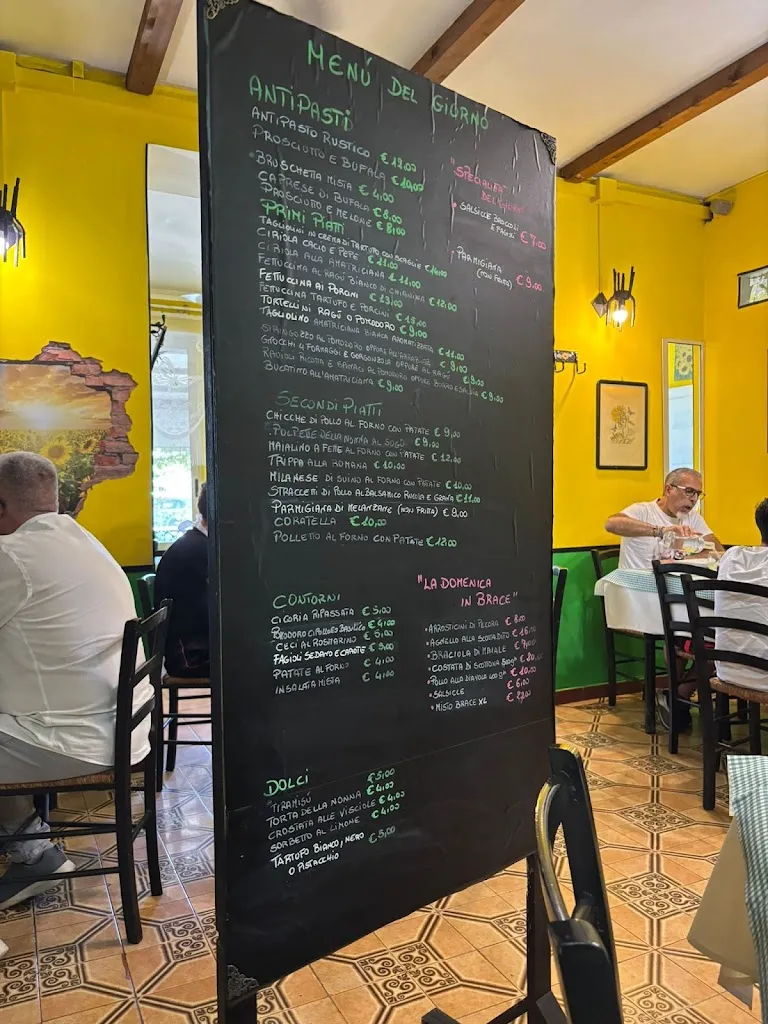 MENÚ DEL GIORNO
ANTIPASTI
ANTIPASTO RUSTICO € 12,00
PROSCIUTTO E BUFALA € 10,00
BRUSCHETTA MISTA € 4,00
CAPRESE DI BUFALA € 8,00
PROSCIUTTO E MELONE € 8,00
PRIMI PIATTI
TAGLIOLINI IN CREMA DI TARTUFO CON SCAGLIE € 16,00
CIRIOLA CACIO E PEPE € 11,00
CIRIOLA ALLA AMATRICIANA € 11,00
FETTUCCINA AL RAGÙ BIANCO DI CHIANINA € 12,00
FETTUCCINA AI PORCINI € 13,00
FETTUCCINA TARTUFO E PORCINI € 15,00
TORTELLINI RAGÙ O POMODORO € 9,00
TAGLIOLINO AMATRICIANA BIANCA AROMATIZZATA € 11,00
STRINGOZZO AL POMODORO OPPURE ALL'ARRABBIATA € 9,00
GNOCCHI 4 FORMAGGI E GORGONZOLA OPPURE AL RAGÙ € 9,00
RAVIOLI RICOTTA E SPINACI AL POMODORO OPPURE BURRO E SALVIA € 9,00
BUCATINO ALL'AMATRICIANA € 9,00
SECONDI PIATTI
CHICCHE DI POLLO AL FORNO CON PATATE € 9,00
POLPETTE DELLA NONNA AL SUGO € 9,00
MAIALINO A FETTE AL FORNO CON PATATE € 12,00
TRIPPA ALLA ROMANA € 10,00
MILANESE DI SUINO AL FORNO CON PATATE € 10,00
STRACCETTI DI POLLO AL BALSAMICO RUCOLA E GRANA € 11,00
PARMIGIANA DI MELANZANE (NON FRITTA) € 9,00
CORATELLA € 10,00
POLLETTO AL FORNO CON PATATE € 12,00
CONTORNI
CICORIA RIPASSATA € 5,00
POMODORO CIPOLLA E BASILICO € 4,00
CECI AL ROSMARINO € 5,00
FAGIOLI SEDANO E CAROTE € 5,00
PATATE AL FORNO € 4,00
INSALATA MISTA € 4,00
DOLCI
TIRAMISÚ € 5,00
TORTA DELLA NONNA € 4,00
CROSTATA ALLE VISCIOLE € 4,00
SORBETTO AL LIMONE € 4,00
TARTUFO BIANCO, NERO € 5,00
O PISTACCHIO
"SPECIALITÀ
DEL GIORNO"
SALSICCE BROCCOLI
E FAGIOLI € 7,00
PARMIGIANA
(NON FRITTA) € 9,00
"LA DOMENICA
IN BRACE"
• ARROSTICINI DI PECORA € 8,00
• AGNELLO ALLA SCOTTADITO €
• BRACIOLA DI MAIALE € 7,00
• COSTATA DI SCOTTONA €
• POLLO ALLA DIAVOLA € 10,00
• SALSICCE € 6,00
• MISTO BRACE XL €